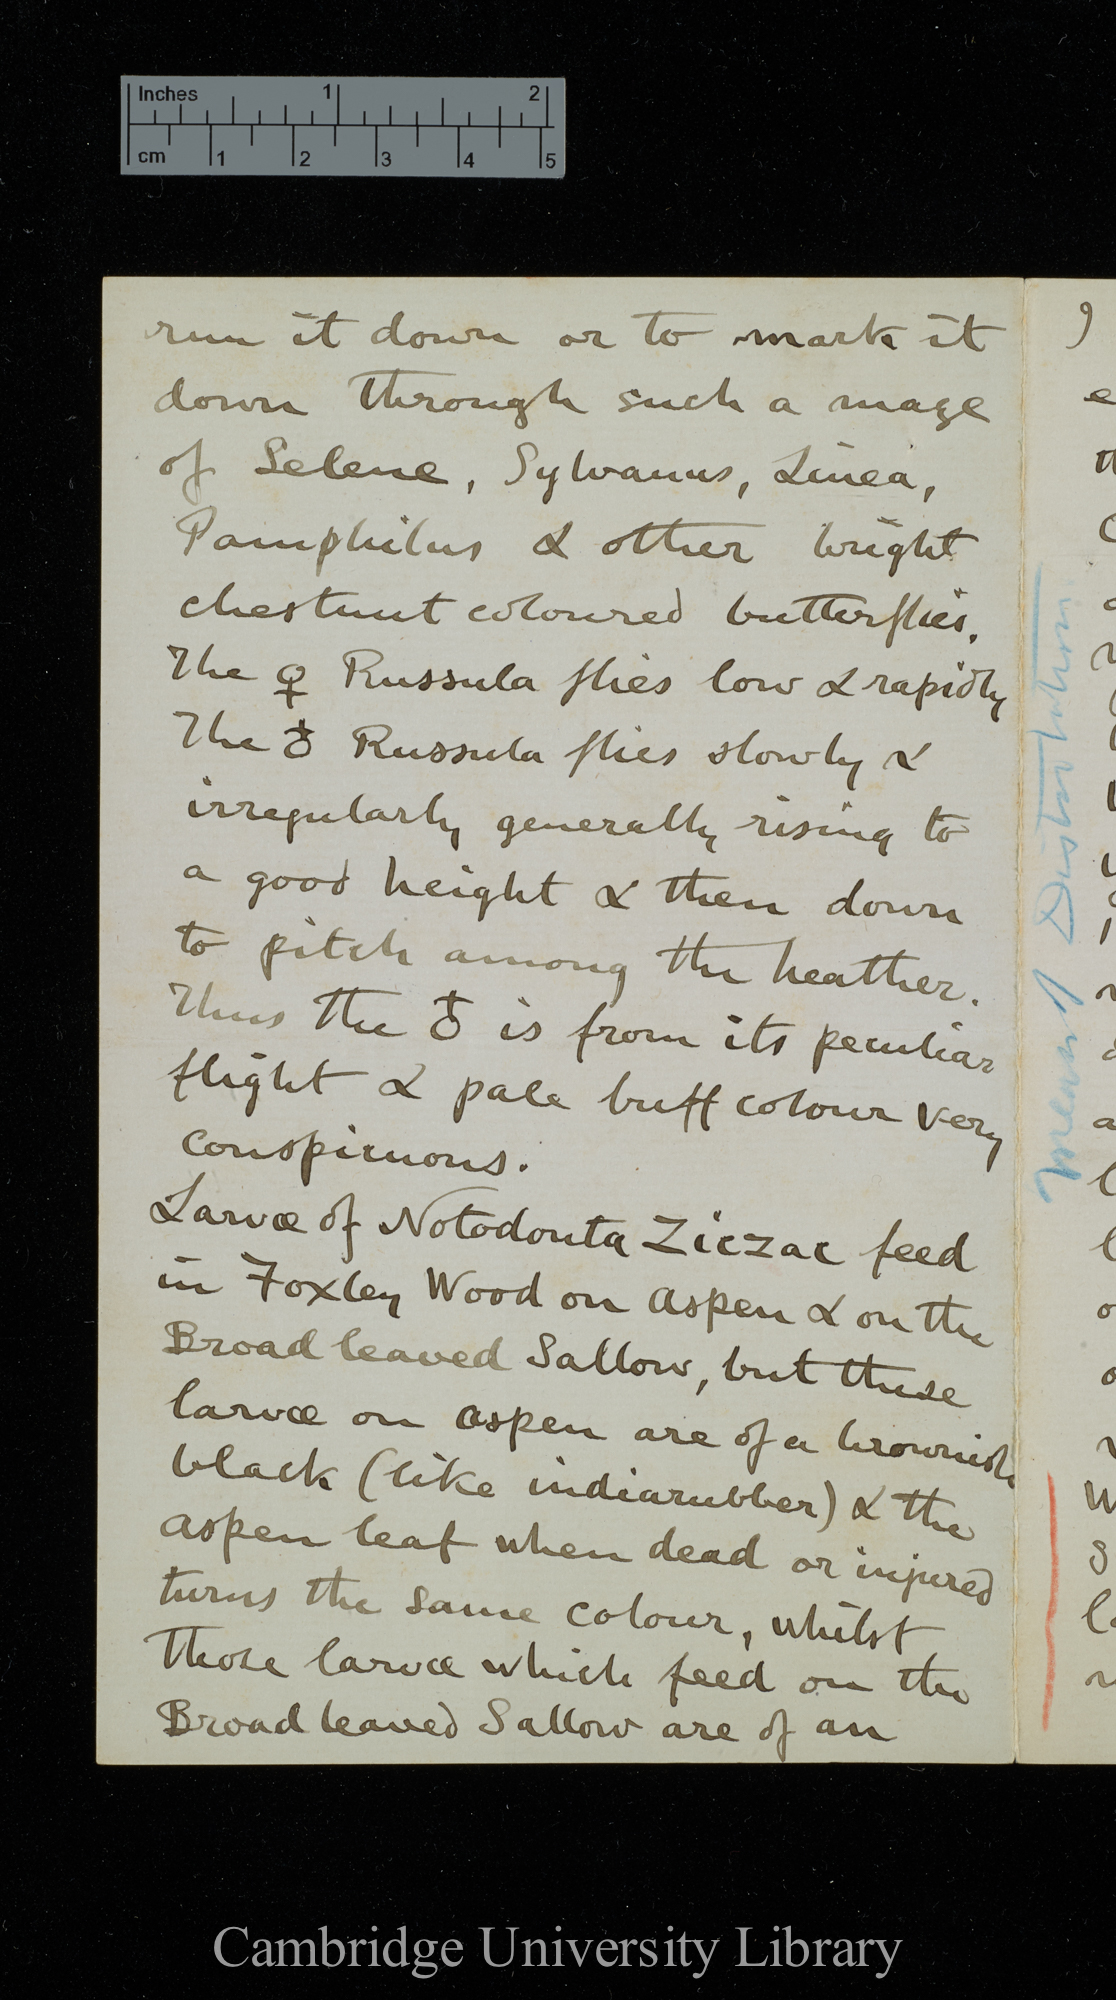 Inches 1 2
cm 1 2 3 4 5
run it down or to mark it
down through such a maze
of Selene, Sylvanus, Linea,
Pamphilus & other bright
chestnut coloured butterflies.
The ♀ Russula flies low & rapidly
The ♂ Russula flies slowly &
irregularly generally rising to
a good height & then down
to pitch among the heather.
Thus the ♂ is from its peculiar
flight & pale buff colour very
conspicuous.
Larvæ of Notodonta Ziczac feed
in Foxley Wood on aspen & on the
Broad leaved Sallow, but those
larvæ on aspen are of a brownish
black (like indiarubber) & the
aspen leaf when dead or injured
turns the same colour, whilst
those larvæ which feed on the
Broad leaved Sallow are of an
Cambridge University Library